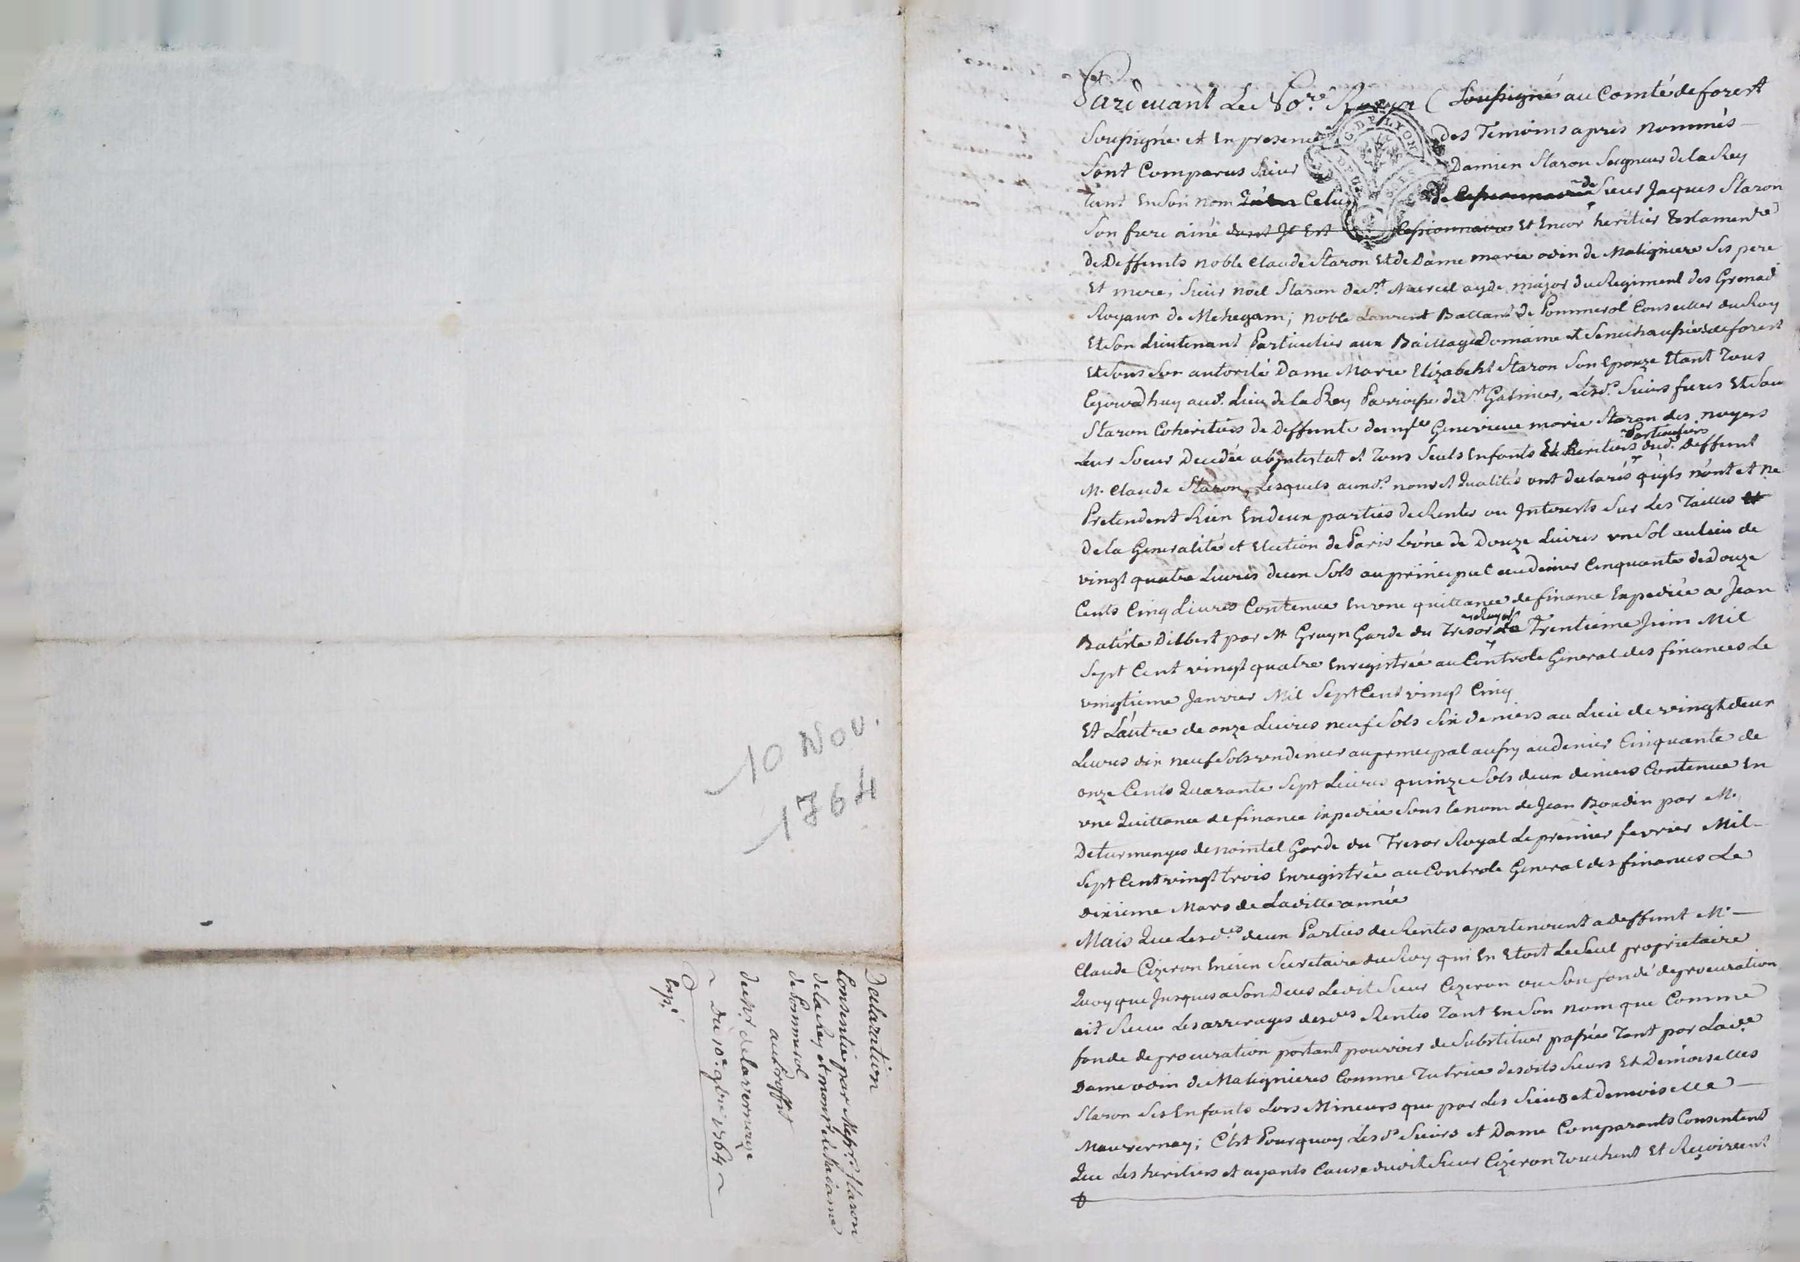 10 Nov.
1764
Declaration
Consentie par Messrs. Staron
de la Rey et monsr. et madame
de Pommerol
au proffit
du Sr. de lavernouze
~ Du 10e. 9bre. 1764 ~
Expé
Pardevant Le No.re Royal Soussigné au Comté de forest
Soussigné et En presence des Temoins apres nommés
Sont Comparus Sieur Damien Staron Seigneur de la Rey
tant En Son nom Celuy de Cessionnaire de Sieur Jaques Staron
Son frere ainé dont Il Est Cessionnaire Et Encor heritier Testamentre
De Deffunts noble Claude Staron Et de Dame marie odin de Malignieres Ses pere
Et mere, Sieur noël Staron de St. Marcel ayde major du Regiment des Grenad
Royaux de Mehegam; noble Laurent Battant De Pommerol Conseiller du Roy
Et Son Lieutenant Particulier aux Baillage Domaine et Senechaussée de forest
Et Sous Son autorité Dame Marie Elizabeht Staron Son Epouze Etant Tous
Cejourdhuy aud. Lieu de la Rey Parroisse de St. Galmier, Lesd. Sieurs freres Et Sœur
Staron Coheritiers de Deffunte demlle Genevieve marie Staron des noyers
Leur Sœur Decedée abjntestat et Tous Seuls Enfants Et heritiers Particuliers dud. Deffunt
M. Claude Staron, Lesquels auxd. noms et Qualités ont declarés qu'ils n'ont et ne
Pretendent Rien En deux parties de Rentes ou Interests Sur Les Tailles
De la Generalité et Election de Paris L'une de Douze Livres un Sol au lieu de
vingt quatre Livres deux Sols au principal au denier Cinquante de Douze
Cents Cinq Livres Contenue En une quittance de finance Expediée a Jean
Batiste Dilbert par M. Gruyn Garde du Tresor Royal Le Trentieme Juin Mil
Sept Cent vingt quatre Enregistrée au Controle General des finances Le
vingtieme Janvier Mil Sept Cent vingt Cinq
Et L'autre de onze Livres neuf Sols Six deniers au Lieu de vingt deux
Livres dix neuf Sols un denier au principal aussy au denier Cinquante de
onze Cents Quarante Sept Livres quinze Sols deux deniers Contenue En
une Quittance de finance Expediée Sous le nom de Jean Boudin par M.
De turmenyes de nointel Garde du Tresor Royal Le premier fevrier Mil
Sept Cent vingt trois Enregistrée au Controle General des finances Le
dixieme Mars de Laditte année
Mais Que Lesd.es deux Parties de Rentes apartenoient a deffunt M.
Claude Cizeron Encien Secretaire du Roy qui En Etoit Le Seul proprietaire
Quoy que Jusques a Son Deces Ledit Sieur Cizeron ou Son fondé de procuration
ait Reçu Les arrerages desd.es Rentes Tant En Son nom que Comme
fondé de procuration portant pouvoir de Substituer passée Tant par Lad.e
Dame odin de Malignieres Comme Tutrice desdits Sieurs Et Demoiselles
Staron Ses Enfants Lors Mineurs que par Les Sieurs et demoiselle
Mauvernay; C'est Pourquoy Lesd. Sieurs et Dame Comparants Consentent
Que Les heritiers et ayants Cause dudit Sieur Cizeron Touchent Et Reçoivent
G. DE LYON